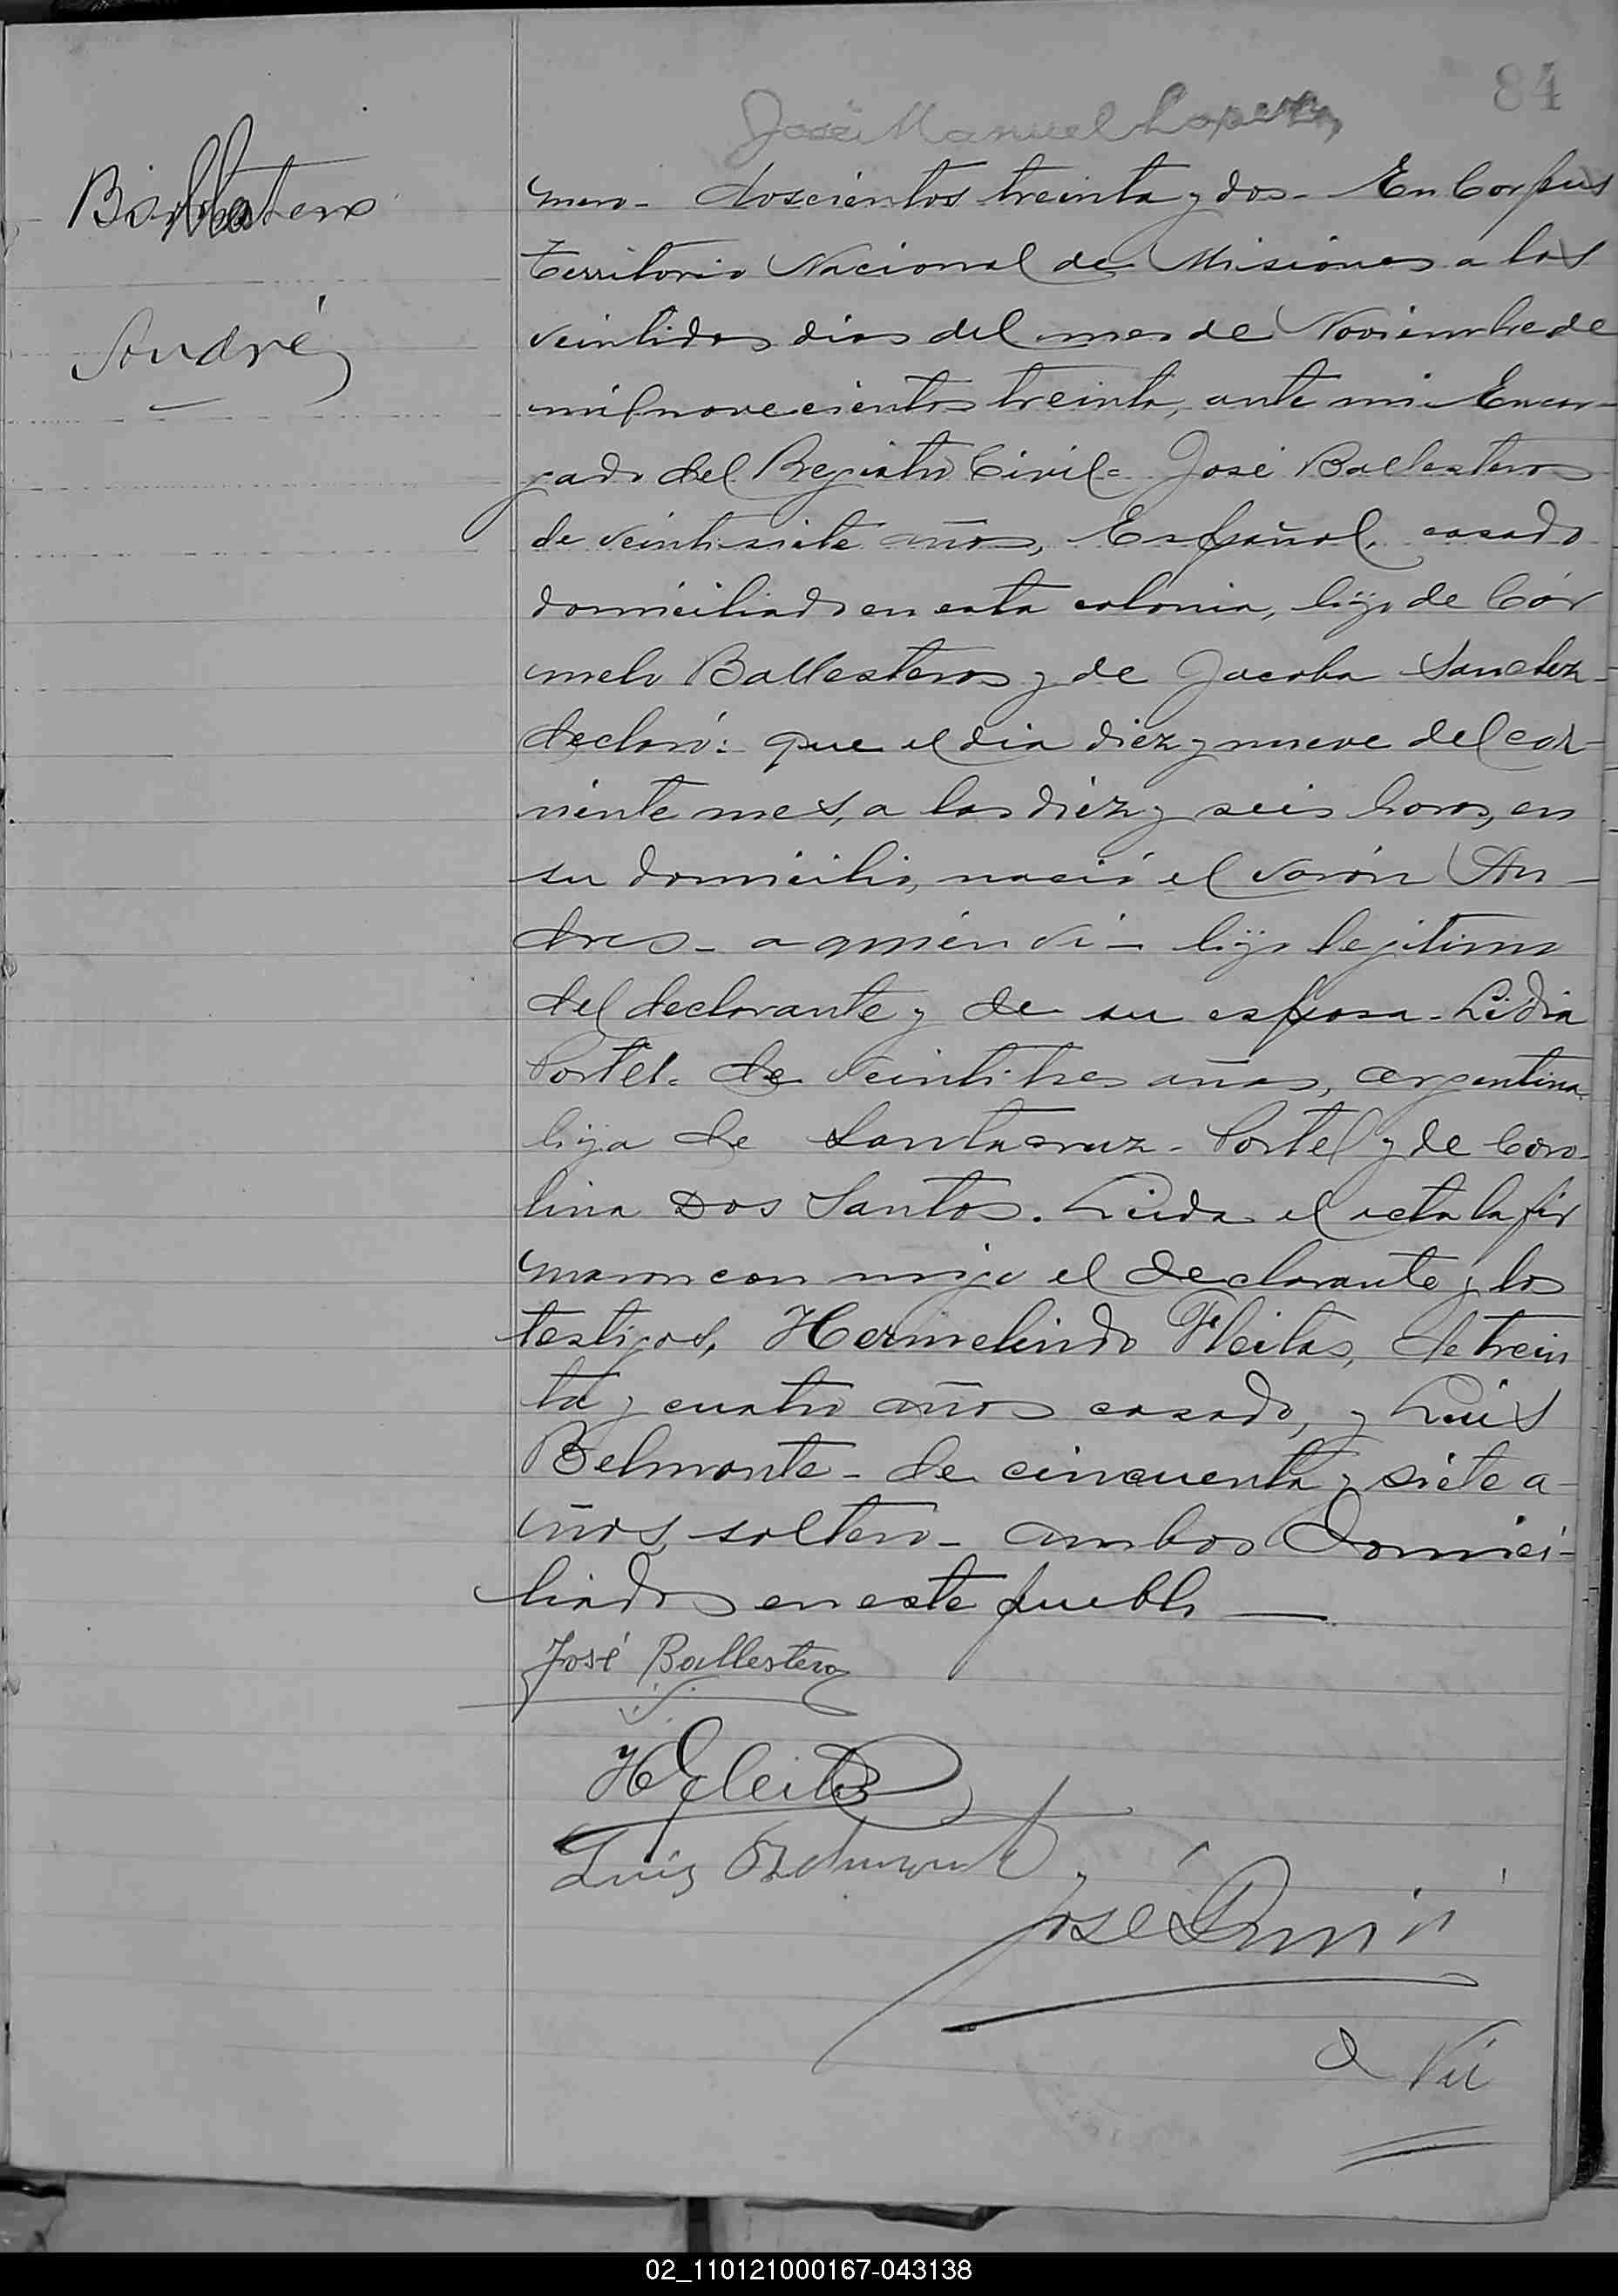 84
José Manuel
Ballestero
Andrés
mero- doscientos treinta y dos- En Corpus
Territorio Nacional de Misiones a los
veintidos dias del mes de Noviembre de
mil novecientos treinta, ante mi Encar-
gado del Registro Civil= José Ballesteros
de veintisiete años, Español, casado
domiciliado en esta colonia, hijo de Car
melo Ballesteros y de Jacoba Sanchez-
declaró: que el dia diez y nueve del cor-
riente mes, a las diez y seis horas, en
su domicilio, nació el varón An-
dres- a quien vi- hijo legitimo
del declarante y de su esposa- Lidia
Portel- de veintitres años, argentina-
hija de Santacruz- Portel y de Caro-
lina Dos Santos. Leida el acta la fir
maron con migo el declarante y los
testigos, Hermelindo Fleitas, de trein
ta y cuatro años casado, y Luis
Belmonte- de cincuenta y siete a-
ños, soltero- ambos domici-
liados en este pueblo —
José Ballesteros
H Fleitas
Luis Belmonte
José
02_110121000167-043138